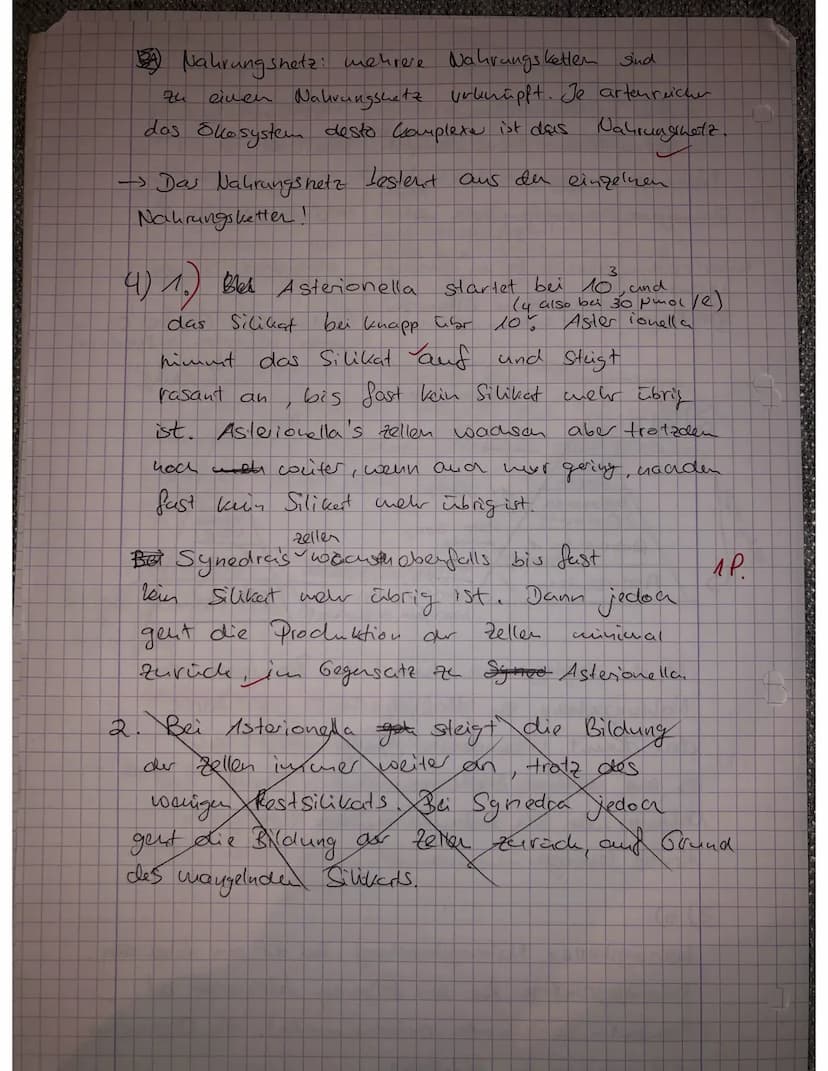 Nahrungsnetz: mehrere Nahrungsketten sind
zu einen Nahrungsnetz verknüpft. Je artenreicher
das Ökosystem desto komplexer ist das Nahrungsnetz.
→ Das Nahrungsnetz besteht aus den einzelnen
Nahrungsketten!
4) 1.) Asterionella startet bei 10³, und
(4 also bei 30 µmol/l)
das Silikat bei knapp über 10⁵. Asterionella
nimmt das Silikat auf und steigt
rasant an, bis fast kein Silikat mehr übrig
ist. Asterionella's Zellen wachsen aber trotzdem
noch weiter, wenn auch nur gering, nachdem
fast kein Silikat mehr übrig ist.
Zellen
Synedra's wachsen ebenfalls bis fast
1 P.
kein Silikat mehr übrig ist. Dann jedoch
geht die Produktion der Zellen minimal
zurück, im Gegensatz zu Asterionella.
2. Bei Asterionella steigt die Bildung
der Zellen immer weiter an, trotz des
wenigen Restsilikats. Bei Synedra jedoch
geht die Bildung der Zellen zurück, auf Grund
des mangelnden Silikats.